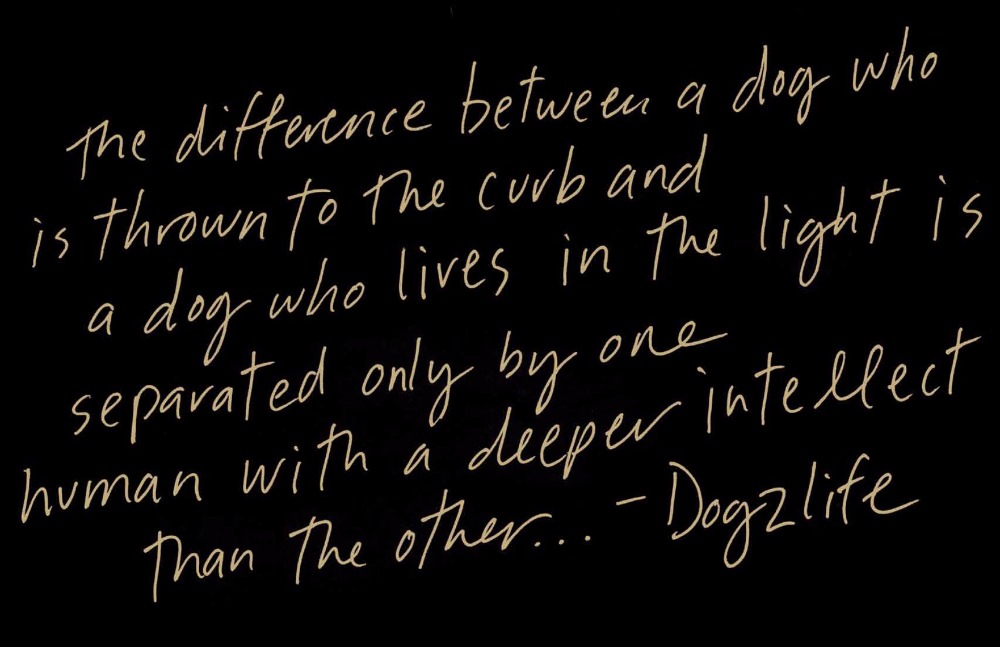 The difference between a dog who
is thrown to the curb and
a dog who lives in the light is
separated only by one
human with a deeper intellect
than the other... - Dogzlife